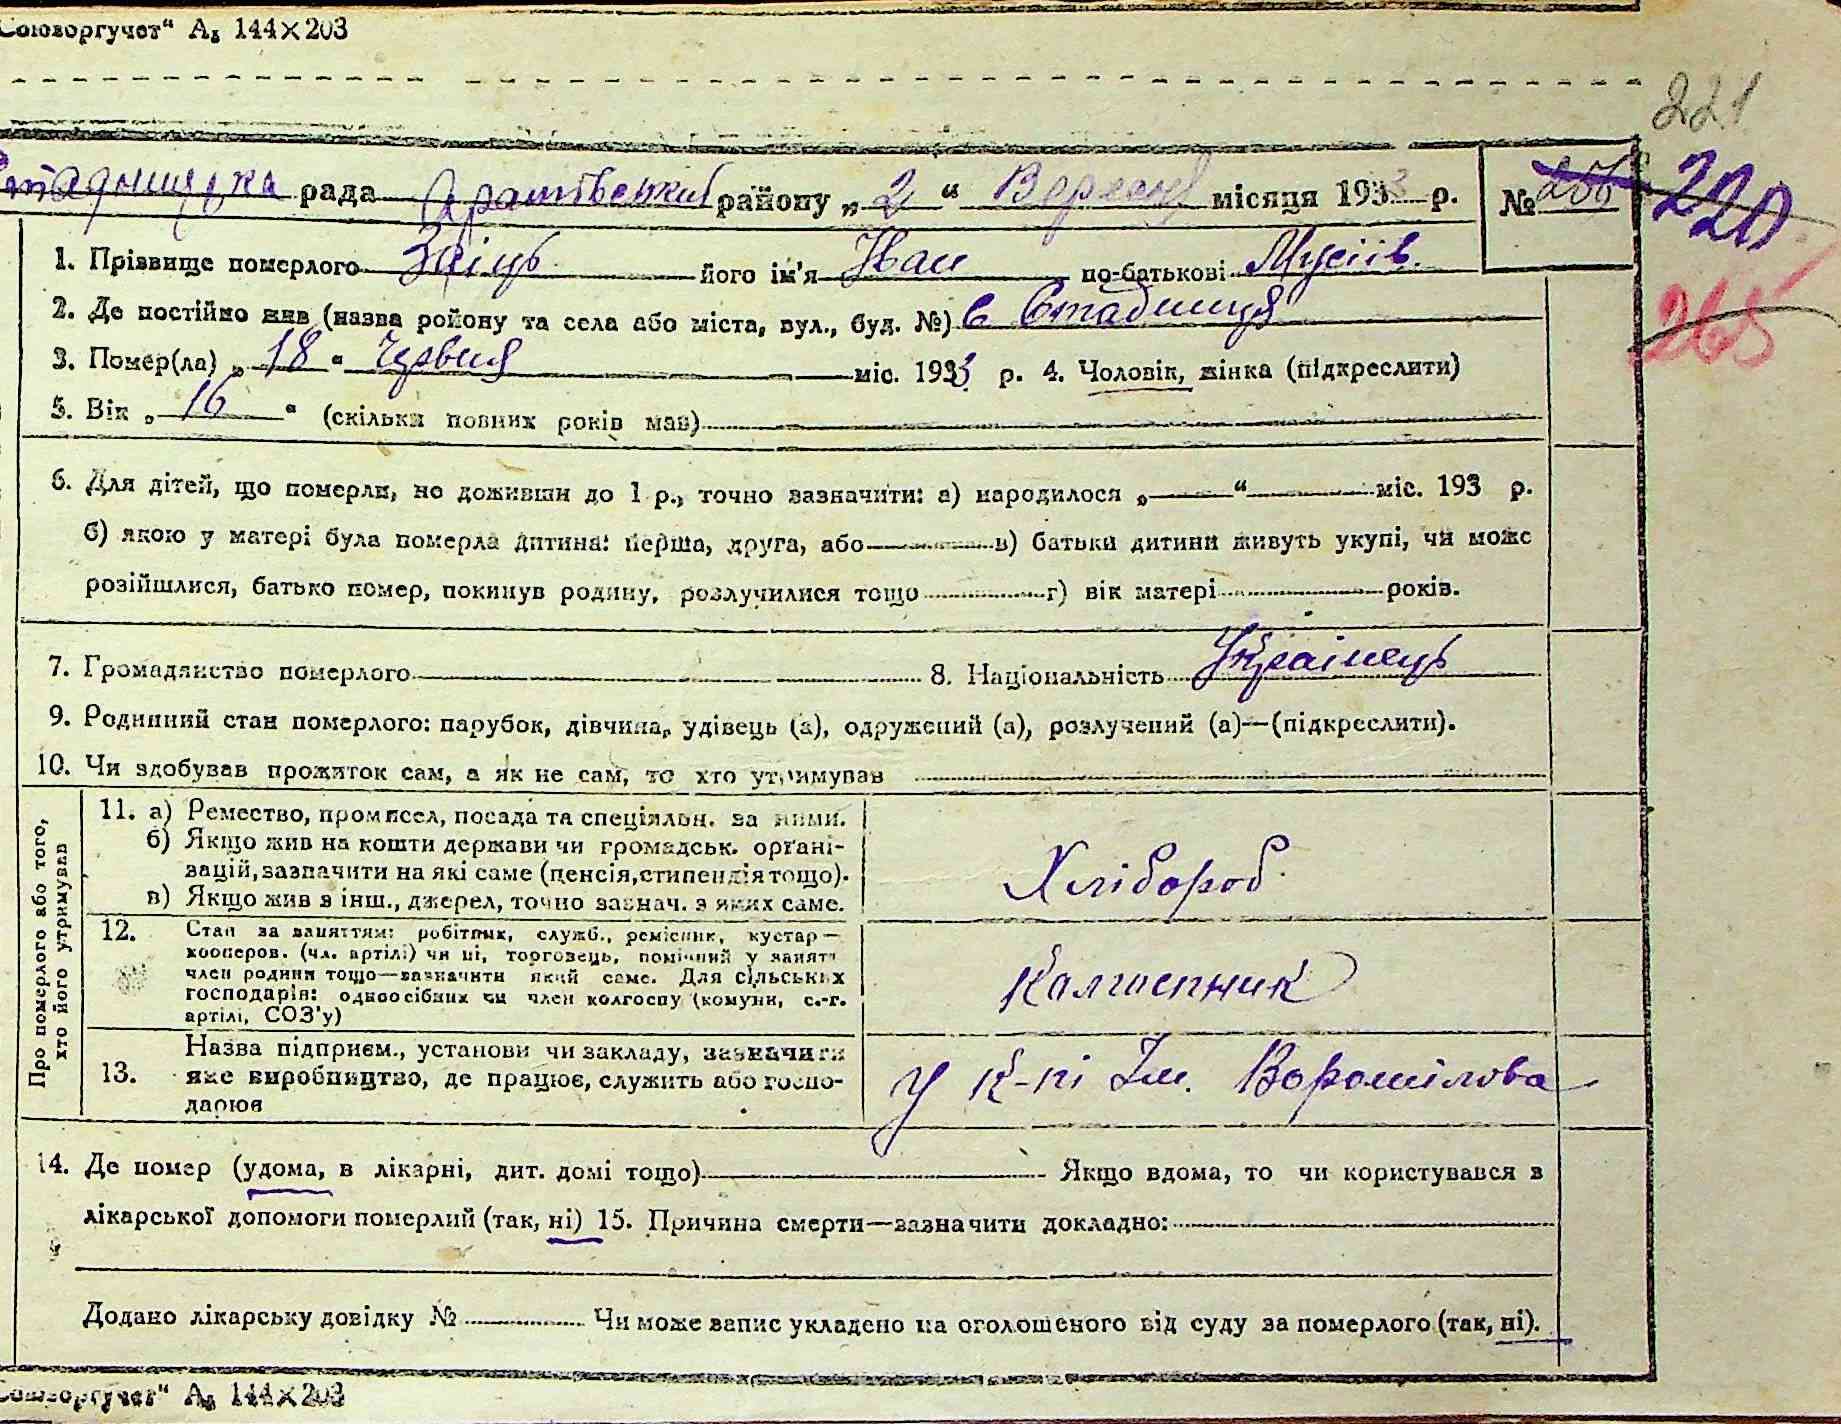 Союзоргучет" А₅ 144×203
221
Стадницька рада районy „2“ Вересня місяця 1933 р. № 256 220
1. Прізвище померлого Заіць його ім'я Іван по-батькові Мусіів.
265
2. Де постійно жив (назва ройону та села або міста, вул., буд. №) С Стадниця
3. Помер(ла) „18“ Червня міс. 1933 р. 4. Чоловік, жінка (підкреслити)
5. Вік „16“ (скільки повних років мав)
6. Для дітей, що померли, не доживши до 1 р., точно зазначити: а) народилося „ “ міс. 193 р.
б) якою у матері була померла дитина: перша, друга, або в) батьки дитини живуть укупі, чи може
розійшлися, батько помер, покинув родину, розлучилися тощо г) вік матері років.
7. Громадянство померлого 8. Національність Українець
9. Родинний стан померлого: парубок, дівчина, удівець (а), одружений (а), розлучений (а)—(підкреслити).
10. Чи здобував прожиток сам, а як не сам, то хто утримував
Про померлого або того, хто його утримував
11. а) Ремество, промисел, посада та спеціяльн. за ними.
б) Якщо жив на кошти держави чи громадськ. органі-
зацій, зазначити на які саме (пенсія, стипендія тощо).
в) Якщо жив з інш., джерел, точно зазнач. з яких саме.
Хлібороб
12. Стан за заняттям: робітник, служб., ремісник, кустар—
кооперов. (чл. артілі) чи ні, торговець, помічний у занятт
член родини тощо—зазначити який саме. Для сільських
господарів: одноосібник чи член колгоспу (комуни, с.-г.
артілі, СОЗ'у)
Колгоспник
13. Назва підприєм., установи чи закладу, зазначити
яке виробництво, де працює, служить або госпо-
дарює
У К-пі Ім. Ворошілова
14. Де помер (удома, в лікарні, дит. домі тощо) Якщо вдома, то чи користувався в
лікарської допомоги померлий (так, ні) 15. Причина смерти—зазначити докладно:
Додано лікарську довідку № Чи може запис укладено на оголошеного від суду за померлого (так, ні).
Союзоргучет" А₅ 144×203